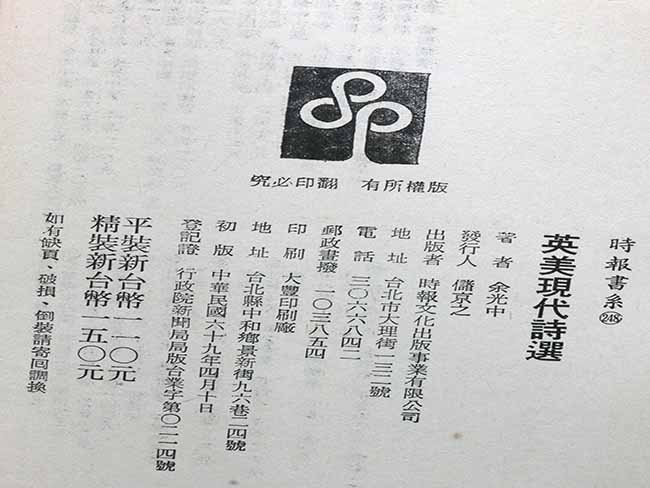 時報書系248
英美現代詩選
著者 余光中
發行人 儲京之
出版者 時報文化出版事業有限公司
地址 台北市大理街一三二號
電話 三〇六六八四二
郵政畫撥 一〇三八五四
印刷 大豐印刷廠
地址 台北縣中和鄉景新街九六巷二四號
初版 中華民國六十九年四月十日
登記證 行政院新聞局局版台業字第〇二一四號
平裝新台幣一一〇元
精裝新台幣一五〇元
如有缺頁、破損、倒裝請寄回調換
版權所有 翻印必究